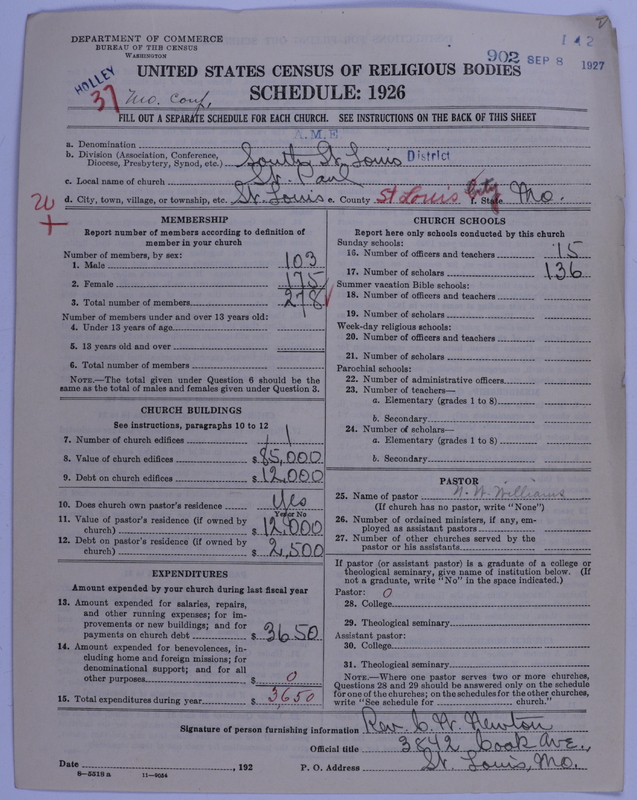 DEPARTMENT OF COMMERCE
BUREAU OF THE CENSUS
WASHINGTON
902 SEP 8 1927
HOLLEY
37 Mo. Conf,
UNITED STATES CENSUS OF RELIGIOUS BODIES
SCHEDULE: 1926
FILL OUT A SEPARATE SCHEDULE FOR EACH CHURCH. SEE INSTRUCTIONS ON THE BACK OF THIS SHEET
A.M.E
a. Denomination
b. Division (Association, Conference, Diocese, Presbytery, Synod, etc.) South St. Louis District
c. Local name of church St. Paul
d. City, town, village, or township, etc. St. Louis e. County St Louis City f. State Mo.
MEMBERSHIP
Report number of members according to definition of
member in your church
Number of members, by sex:
1. Male 103
2. Female 175
3. Total number of members 278
Number of members under and over 13 years old:
4. Under 13 years of age
5. 13 years old and over
6. Total number of members
NOTE.—The total given under Question 6 should be the
same as the total of males and females given under Question 3.
CHURCH BUILDINGS
See instructions, paragraphs 10 to 12
7. Number of church edifices 1
8. Value of church edifices $85,000
9. Debt on church edifices $12,000
10. Does church own pastor's residence Yes
Yes or No
11. Value of pastor's residence (if owned by
church) $12,000
12. Debt on pastor's residence (if owned by
church) $2,500
EXPENDITURES
Amount expended by your church during last fiscal year
13. Amount expended for salaries, repairs,
and other running expenses; for im-
provements or new buildings; and for
payments on church debt $3650
14. Amount expended for benevolences, in-
cluding home and foreign missions; for
denominational support; and for all
other purposes $0
15. Total expenditures during year $3650
CHURCH SCHOOLS
Report here only schools conducted by this church
Sunday schools:
16. Number of officers and teachers 15
17. Number of scholars 136
Summer vacation Bible schools:
18. Number of officers and teachers
19. Number of scholars
Week-day religious schools:
20. Number of officers and teachers
21. Number of scholars
Parochial schools:
22. Number of administrative officers
23. Number of teachers—
a. Elementary (grades 1 to 8)
b. Secondary
24. Number of scholars—
a. Elementary (grades 1 to 8)
b. Secondary
PASTOR
25. Name of pastor N. W. Williams
(If church has no pastor, write "None")
26. Number of ordained ministers, if any, em-
ployed as assistant pastors
27. Number of other churches served by the
pastor or his assistants
If pastor (or assistant pastor) is a graduate of a college or
theological seminary, give name of institution below. (If
not a graduate, write "No" in the space indicated.)
Pastor: 0
28. College
29. Theological seminary
Assistant pastor:
30. College
31. Theological seminary
NOTE.—Where one pastor serves two or more churches,
Questions 28 and 29 should be answered only on the schedule
for one of the churches; on the schedules for the other churches,
write "See schedule for church."
Signature of person furnishing information Rev. C. W. Newton
Official title 3842 Cook Ave.,
Date , 192 P. O. Address St. Louis, Mo.
8—5518 a 11—9034